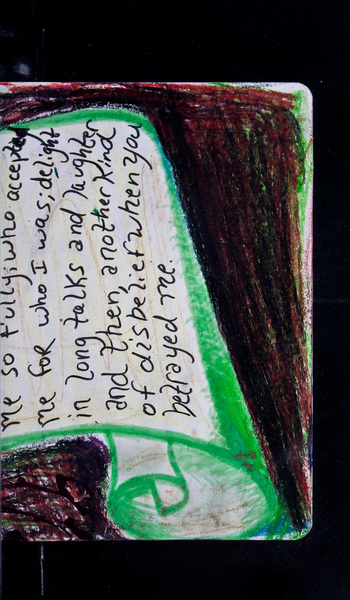 me so fully; who accepted
me for who I was; delight
in long talks and laughter
and then, another kind
of disbelief when you
betrayed me.